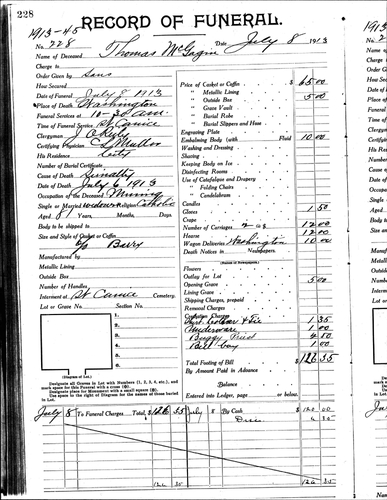 228
RECORD OF FUNERAL.
1913-45
No. 228 Date July 8 1913
Name of Deceased Thomas McGagin
Charge to
Order Given by Sons
How Secured
Date of Funeral July 8 1913
Place of Death Washington
Funeral Services at 10-30 am.
Time of Funeral Service St Canice
Clergyman J O
Certifying Physician
His Residence City
Number of Burial Certificate
Cause of Death Senality
Date of Death July 6 1913
Occupation of the Deceased Mining
Single or Married widower Religion Catholic
Aged 81 Years, Months, Days.
Body to be shipped to
Size and Style of Casket or Coffin
6/3 Barry
Manufactured by
Metallic Lining
Outside Box
Number of Handles
Interment at St Canice Cemetery.
Lot or Grave No. Section No.
1
2
3
4
5
6
(Diagram of Lot.)
Designate all Graves in Lot with Numbers (1, 2, 3, 4, etc.), and mark space for this Funeral with a cross (X).
Designate place for Monument with a small square (□).
Use space to the right of Diagram for the names of those buried in Lot.
Price of Casket or Coffin $65.00
" Metallic Lining
" Outside Box 5.00
" Grave Vault
" Burial Robe
" Burial Slippers and Hose
Engraving Plate
Embalming Body (with Fluid 10.00
Washing and Dressing
Shaving
Keeping Body on Ice
Disinfecting Rooms
Use of Catafalque and Drapery
" Folding Chairs
" Candelabrum
Candles
Gloves 1.50
Crape
Number of Carriages 2 @ 6 12.00
Hearse 12.00
Wagon Deliveries Washington 10.00
Death Notices in Newspapers
Flowers
Outlay for Lot
Opening Grave 5.00
Lining Grave
Shipping Charges, prepaid
Removal Charges
Cremation Charge
Shirt Collar & Tie 1.35
Underware 1.00
Buggy Priest 2.50
1.00
Total Footing of Bill $126.35
By Amount Paid in Advance
Balance
Entered into Ledger, page or below.
July 8 To Funeral Charges $126 35 July 8 By Cash $120 00
Disc 6 35
126 35 126 35